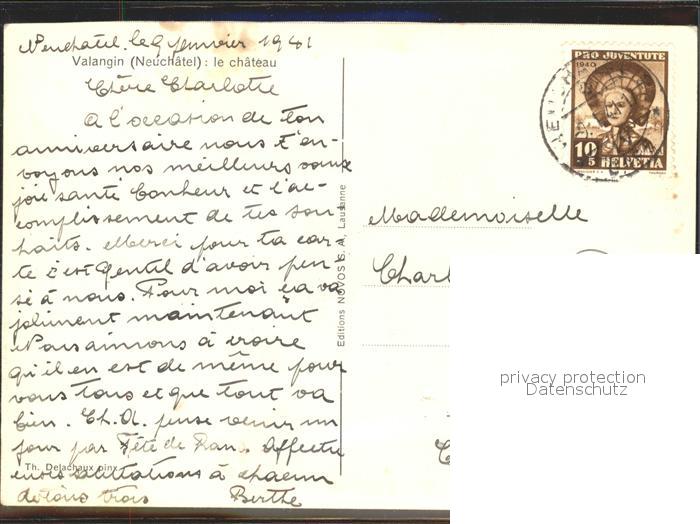 Neuchâtel, le 9 janvier 1941
Valangin (Neuchâtel): le château
Chère Charlotte
A l'occasion de ton
anniversaire nous t'en-
voyons nos meilleurs vœux
joie santé bonheur et l'ac-
complissement de tes sou-
haits. Merci pour ta car-
te c'est gentil d'avoir pen-
sé à nous. Pour moi ça va
joliment maintenant
Nous aimons à croire
qu'il en est de même pour
vous tous et que tout va
bien. Ch. A. pense venir un
jour par Fête de
Affectu
euses salutations à chacun
Th. Delachaux pinx.
de tous trois Berthe
Editions NOVOS S.A., Lausanne
PRO JUVENTUTE
1940
10+5
HELVETIA
Mademoiselle
Charl
privacy protection
Datenschutz